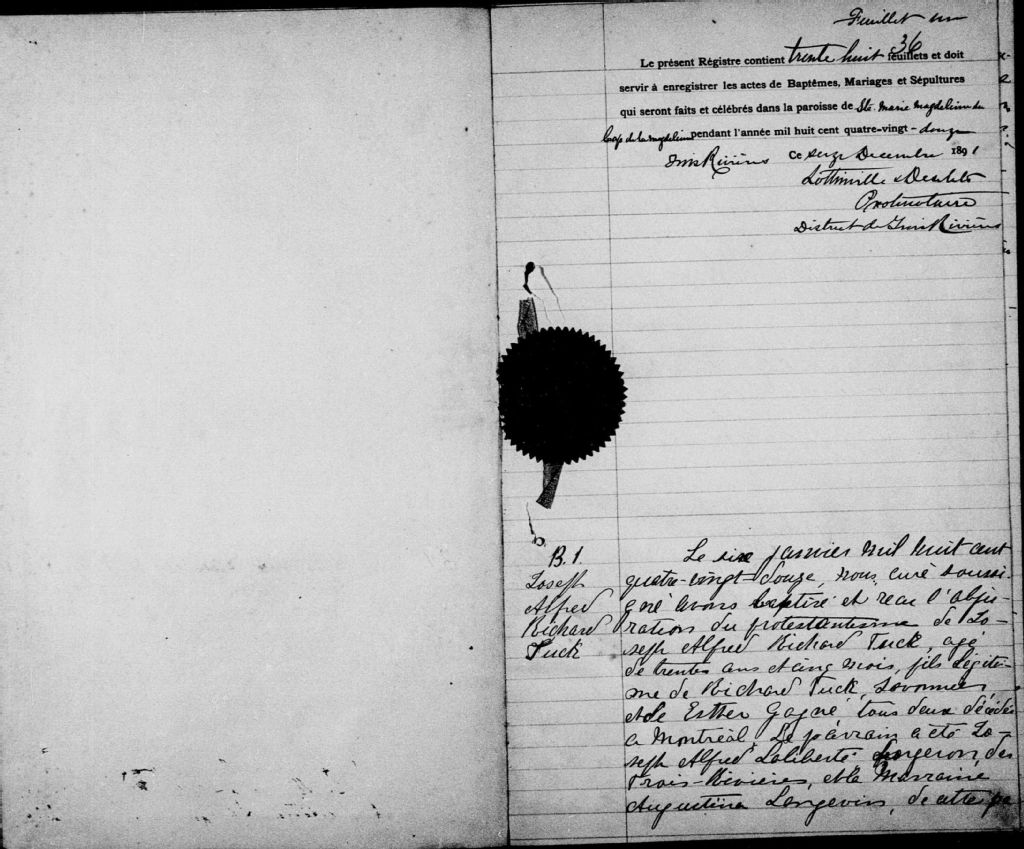 Feuillet un
36
Le présent Régistre contient trente huit feuillets et doit
servir à enregistrer les actes de Baptêmes, Mariages et Sépultures
qui seront faits et célébrés dans la paroisse de Ste. Marie Magdeleine du
Cap de la magdeleine pendant l'année mil huit cent quatre-vingt-douze
Trois Rivières Ce seize Decembre 1891
Lottinville & Desilets
Protonotaire
District de Trois Rivières
B.1
Joseph
Alfred
Richard
Tuck
Le six janvier mil huit cent
quatre-vingt-douze, nous, curé soussi-
gné avons baptisé et recu l'abju-
ration du protestantisme de Jo-
seph Alfred Richard Tuck, agé
de trentes ans et cinq mois, fils légiti-
me de Richard Tuck,
et de Esther Gagné tous deux décédés
a Montréal. Le parrain a été Jo-
seph Alfred Laliberté, forgeron, des
Trois-Rivières, et la Marraine
Augustina Langevin, de cette pa